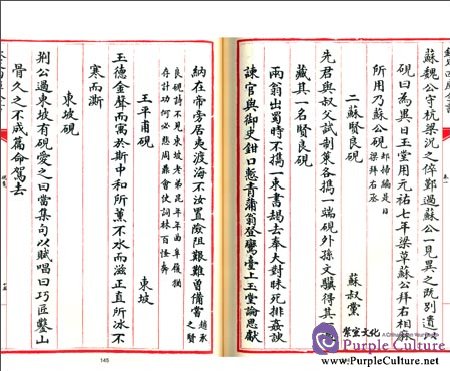 蘇魏公守杭梁況之倅鄭過蘇公一見異之既別遺以
硯曰為異日玉堂用元祐七年梁草蘇公拜右相麻
所用乃蘇公硯
梁拜右丞
二蘇賢良硯 蘇叔黨
先君與叔父試制策各攜一端硯外孫文驥得其一
藏其一名賢良硯
兩翁出蜀時不攜一束書朅去奉天對昧死排姦諛
諫官與御史鉗口慙青蒲翁登鸞臺上玉堂論思獻
納在帝旁居夷渡海不汝置險阻艱難曽備嘗 趙承
之賢
良硯詩不見東坡老弟昆年年曲阜履猶
存計功何必慙周鼎會使詞林百怪奔
王平甫硯 東坡
玉德金聲而寓於斯中和所薰不水而滋正直所冰不
寒而澌
東坡硯
荆公過東坡有硯愛之曰當集句以賦唱曰巧匠鑿山
骨久之不成篇命駕去
145
紫宸文化
Purple Culture
www.purpleculture.net